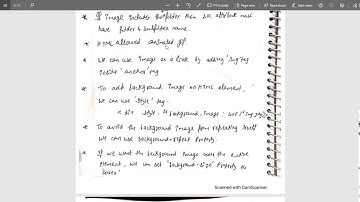 * If Image includes subfolder then src attribute must
have folder & subfolder name.
* HTML allowed animated gif.
* We can use Image as a link by adding 'img' tag
inside 'anchor' tag
* To add background Image on HTML element,
we can use 'style' tag.
< div style = "background-image : url('img.jpg')
* To avoid the background Image from repeating itself
we can use background-repeat
* If we want the background Image cover the entire
element, we can set 'background-size' to
'cover'
Scanned with CamScanner